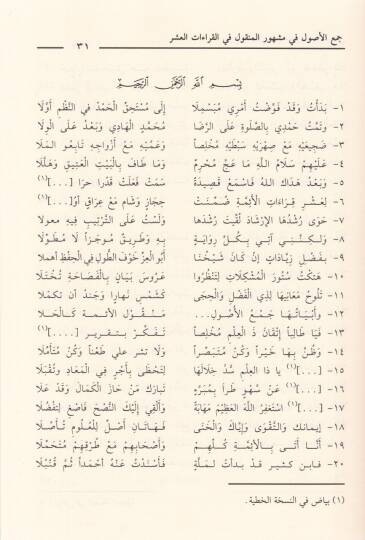 جمع الأصول في مشهور المنقول في القراءات العشر
٣١
بسم الله الرحمن الرحيم
١- بَدَأْتُ وَقَدْ فَوَّضْتُ أَمْرِي مُبَسْمِلَا إِلَى مُسْتَحِقِّ الْحَمْدُ فِي النَّظْمِ أَوَّلَا
٢- وَثَمَّتُ حَمْدِي بِالصَّلَوةِ عَلَى الرِّضَا مُحَمَّدٍ الْهَادِي وَبَعْدُ عَلَى الْوِلَا
٣- ضَجِيعَيْهِ مَعْ صِهْرَيْهِ سِبْطَيْهِ مُخْلِصاً وَعَمَّيْهِ مَعْ أَزْوَاجِهِ تَابِعُو الْمَلَا
٤- عَلَيْهِمْ سَلَامُ اللهِ مَا عَجَّ مُحْرِمٌ وَمَا طَافَ بِالْبَيْتِ الْعَتِيقِ وَهَلَّلَا
٥- وَبَعْدُ هَدَاكَ اللهُ فَاسْمَعْ قَصِيدَةً سَمَتْ فَعَلَتْ قَدْرا حرًا [...](١)
٦- لِعَشْرِ قِرَاءَاتِ الْأَئِمَّةِ ضُمِّنَتْ حِجَازٍ وَشَامٍ مَعْ عِرَاقٍ أو[...](١)
٧- حَوَى رُشْدُهَا الْإِرْشَادَ لُقِّبَتْ رُشْدَهَا وَلَسْتُ عَلَى التَّرْتِيبِ فِيهِ معولا
٨- وَلَكِنَّنِي آتِي بِكُلِّ رِوَايَةٍ بِهِ وَطَرِيقٍ مُوجَزاً لَا مُطَوِّلَا
٩- بِفَضْلِ زِيَادَاتٍ إِنْ كَانَ شَيْخُنَا أَبُو الْعِزِّ خَوْفَ الطُّولِ فِي الْحِفْظِ أهملا
١٠- هَتَكْتُ سُتُورَ الْمُشْكِلَاتِ لِتَنْظُرُوا عَرُوسَ بَيَانٍ بِالْفَصَاحَةِ تُجْتَلَا
١١- تَلُوحُ مَعَانِيهَا لِذِي الْفَضْلِ وَالْحِجَى كَشَمْسِ نَهَارٍ وَجَنْدُ أن تكملا
١٢- وَأَبْيَاتُهَا جَمْعُ الْأُصُولِ... مَنْقُولُ الأئمة كَالْحَلَا
١٣- فَيَا طَالِباً إِتْقَانَ ذَ الْعِلْمِ مُخْلِصاً تَفَكَّرْ بِتَقْرِيرِ [....](١)
١٤- وَظُنَّ بِهَا خَيْراً وَكُنْ مُتَبَصِّراً وَلَا تشر علي طَعْناً وَكُنْ مُتَأَمِّلَا
١٥- [...](١) يا ذا الْعِلْمِ سُدَّ خِلَالَهَا لِتَحْظَى بِأَجْرٍ فِي الْمَعَادِ وَتُقْبَلَا
١٦- [...](١) عَنْ سَهْوٍ طَرَأَ بِمُبَرَّءٍ تَبَارَكَ مَنْ حَازَ الْكَمَالَ وَقَدْ عَلَا
١٧- [...](١) اسْتَغْفِرُ اللهَ الْعَظِيمَ مَهَابَةً وَأُلْقِي إِلَيْكَ النُّصْحَ فَاصْغِ لِتَفْضُلَا
١٨- إيمانك وَالتَّقْوَى وَإِيَّاكَ وَالْخَنَى فَهَاتَانِ أَصْلٌ لِلْعُلُومِ تَأَصَّلَا
١٩- أَنَا أَتَى بِالْأَئِمَّةِ كُلِّهِمْ وَأَصْحَابِهِمْ مَعْ طُرْقِهِمْ مُتَحَمِّلَا
٢٠- فابن كثير قَدْ بدأتُ لمكَّةٍ فَأَسْنَدْتُ عَنْهُ أَحْمَداً ثُمَّ قُنْبُلَا
(١) بياض في النسخة الخطية .